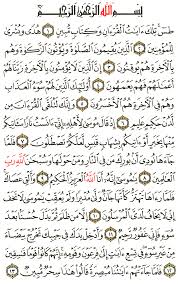 بِسْمِ اللَّهِ الرَّحْمَٰنِ الرَّحِيمِ
طسٓ تِلْكَ ءَايَٰتُ الْقُرْءَانِ وَكِتَابٍ مُّبِينٍ ١ هُدًى وَبُشْرَىٰ
لِلْمُؤْمِنِينَ ٢ الَّذِينَ يُقِيمُونَ الصَّلَوٰةَ وَيُؤْتُونَ الزَّكَوٰةَ وَهُم
بِالْءَاخِرَةِ هُمْ يُوقِنُونَ ٣ إِنَّ الَّذِينَ لَا يُؤْمِنُونَ بِالْءَاخِرَةِ زَيَّنَّا لَهُمْ
أَعْمَٰلَهُمْ فَهُمْ يَعْمَهُونَ ٤ أُولَٰٓئِكَ الَّذِينَ لَهُمْ سُوٓءُ الْعَذَابِ
وَهُمْ فِي الْءَاخِرَةِ هُمُ الْأَخْسَرُونَ ٥ وَإِنَّكَ لَتُلَقَّى الْقُرْءَانَ مِن
لَّدُنْ حَكِيمٍ عَلِيمٍ ٦ إِذْ قَالَ مُوسَىٰ لِأَهْلِهِ إِنِّي ءَانَسْتُ نَارًا سَـَٔاتِيكُم
مِّنْهَا بِخَبَرٍ أَوْ ءَاتِيكُم بِشِهَابٍ قَبَسٍ لَّعَلَّكُمْ تَصْطَلُونَ ٧ فَلَمَّا
جَآءَهَا نُودِيَ أَنۢ بُورِكَ مَن فِي النَّارِ وَمَنْ حَوْلَهَا وَسُبْحَٰنَ اللَّهِ رَبِّ
الْعَٰلَمِينَ ٨ يَٰمُوسَىٰٓ إِنَّهُۥٓ أَنَا اللَّهُ الْعَزِيزُ الْحَكِيمُ ٩ وَأَلْقِ عَصَاكَ
فَلَمَّا رَءَاهَا تَهْتَزُّ كَأَنَّهَا جَآنٌّ وَلَّىٰ مُدْبِرًا وَلَمْ يُعَقِّبْ يَٰمُوسَىٰ لَا تَخَفْ
إِنِّي لَا يَخَافُ لَدَيَّ الْمُرْسَلُونَ ١٠ إِلَّا مَن ظَلَمَ ثُمَّ بَدَّلَ حُسْنًۢا بَعْدَ
سُوٓءٍ فَإِنِّي غَفُورٌ رَّحِيمٌ ١١ وَأَدْخِلْ يَدَكَ فِي جَيْبِكَ تَخْرُجْ بَيْضَآءَ
مِنْ غَيْرِ سُوٓءٍ فِي تِسْعِ ءَايَٰتٍ إِلَىٰ فِرْعَوْنَ وَقَوْمِهِۦٓ إِنَّهُمْ كَانُوا قَوْمًا فَٰسِقِينَ ١٢
فَلَمَّا جَآءَتْهُمْ ءَايَٰتُنَا مُبْصِرَةً قَالُوا هَٰذَا سِحْرٌ مُّبِينٌ ١٣